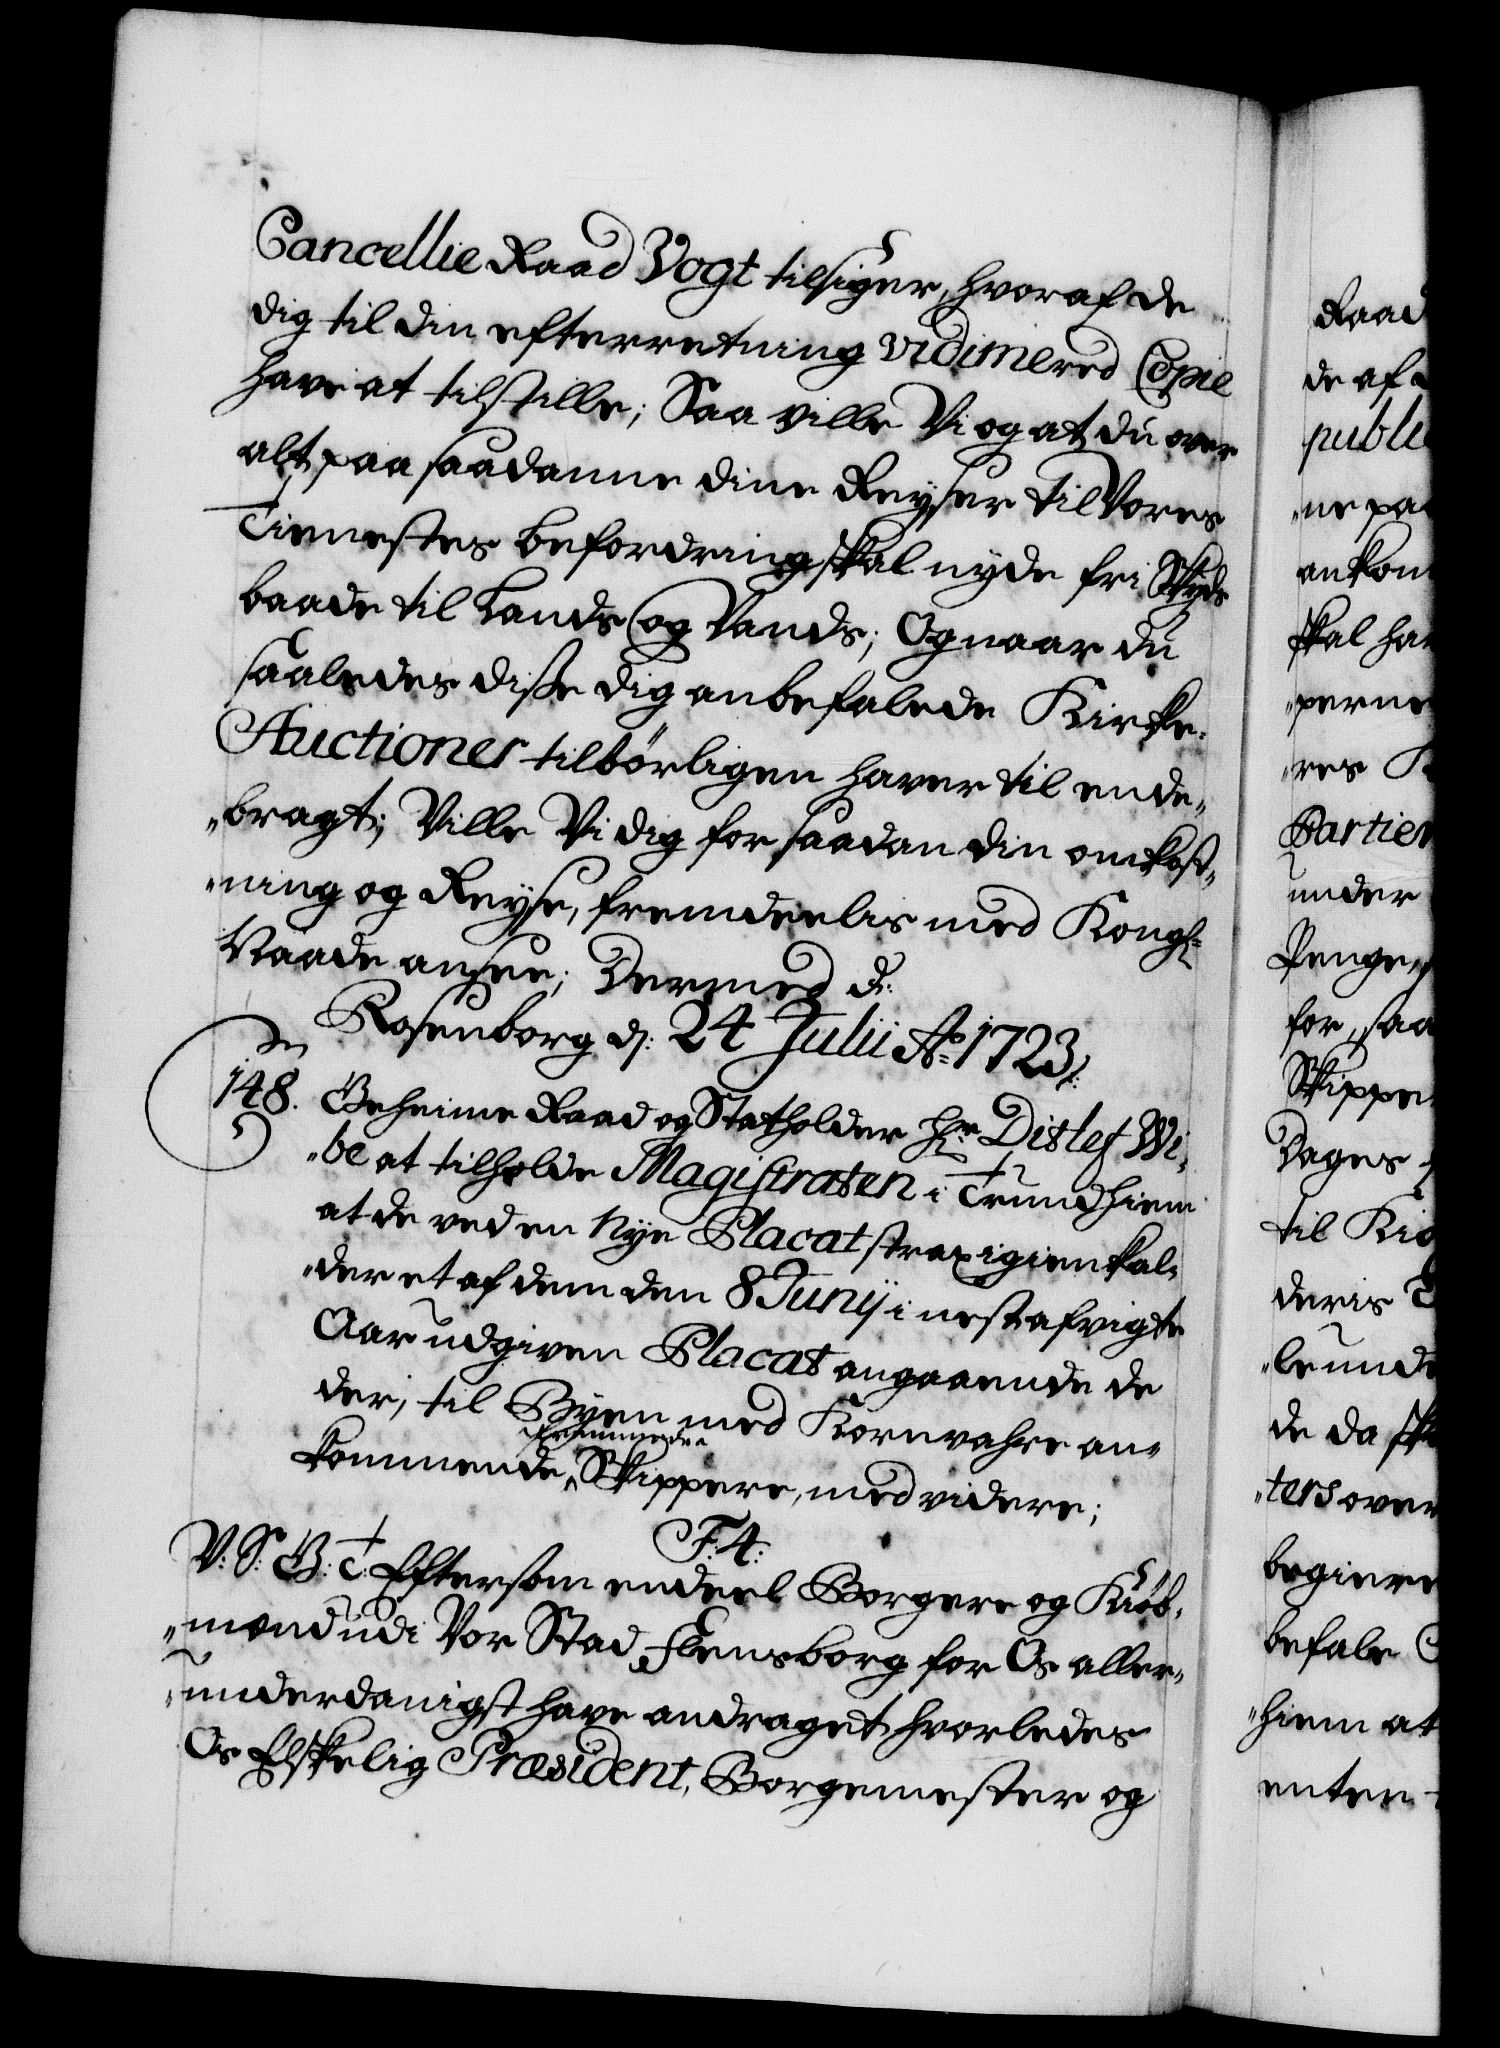 Cancellie Raad Vogt tilsiger, hvoraf de
dig til din efterretning vidimered Copie
have at tilstille; Saa ville Vi og at du over
alt paa saadanne dine Reyser til Vores
Tienestes befordring skal nyde fri Skyds
baade til Lands og Vands; Og naar du
saaledes disse dig anbefalede Kirke-
Auctioner tilbörligen haver til ende,,
,,bragt; Ville Vi dig for saadan din omkost,,
,,ning og Reyse, fremdeelis med Kongl:
Naade ansee; Dermed d:
Rosenborg d: 24 Julii Ao 1723.
148. Geheime Raad og Statholder Hr Ditlef Wi,,
,,be at tilholde Magistraten i Trundhiem
at de ved en Nye Placat strax igienkal,,
,,der et af dem den 8 Junij i nestafvigte
Aar udgiven Placat angaaende de
der, til Byen med Kornvahre an,,
fremmede
kommende Skippere, med videre;
F: 4:
V: S: G: T: Eftersom endeel Borgere og Kiöb,,
,,mænd udi Vor Stad Flensborg for Os aller,,
,,underdanigst have andraget hvorledes
Os Elskelig Præsident, Borgemester og
Raad
de af
publi
,,ne paa
ankom
skal ha
,,perne
,,res K
Partier
under
Penge
for saa
Skippe
Dages
til Kiö
deris
,,le unde
de da sk
,,ters over
begiere
befale
,,hiem at
enten